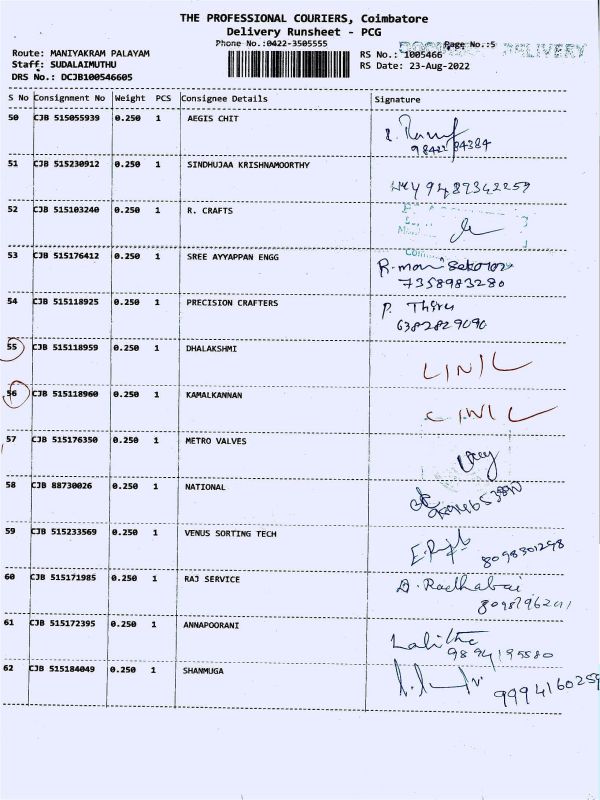 THE PROFESSIONAL COURIERS, Coimbatore
Delivery Runsheet - PCG
Phone No.:0422-3505555
Page No.:5
DELIVERY
Route: MANIYAKRAM PALAYAM
RS No.: 1005466
Staff: SUDALAIMUTHU
RS Date: 23-Aug-2022
DRS No.: DCJB100546605
S No Consignment No Weight PCS Consignee Details Signature
50 CJB 515055939 0.250 1 AEGIS CHIT
51 CJB 515230912 0.250 1 SINDHUJAA KRISHNAMOORTHY
9487342259
52 CJB 515103240 0.250 1 R. CRAFTS
53 CJB 515176412 0.250 1 SREE AYYAPPAN ENGG
R. mani Sekaran
7358983280
54 CJB 515118925 0.250 1 PRECISION CRAFTERS
P. Thiru
6382829090
55 CJB 515118959 0.250 1 DHALAKSHMI
56 CJB 515118960 0.250 1 KAMALKANNAN
57 CJB 515176350 0.250 1 METRO VALVES
58 CJB 88730026 0.250 1 NATIONAL
59 CJB 515233569 0.250 1 VENUS SORTING TECH
8098301298
60 CJB 515171985 0.250 1 RAJ SERVICE
A. Radhabai
61 CJB 515172395 0.250 1 ANNAPOORANI
Lalitha
9894195580
62 CJB 515184049 0.250 1 SHANMUGA
9994160259